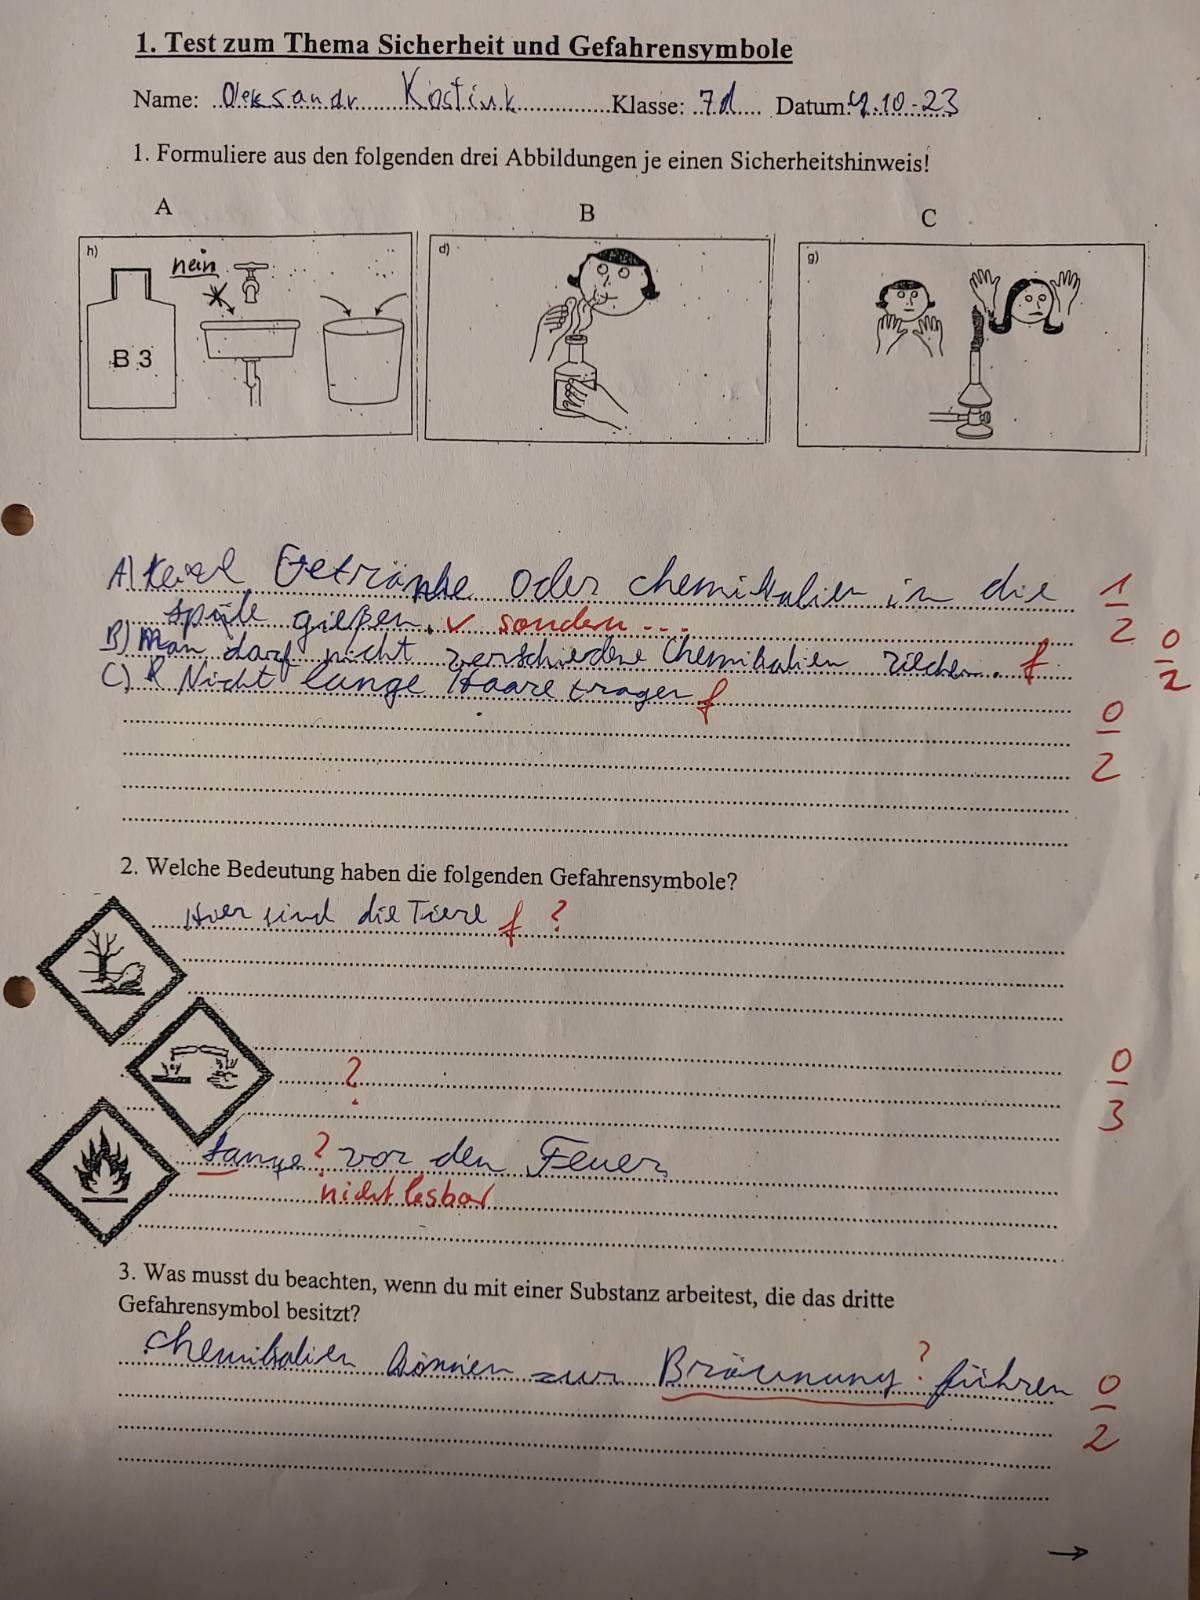 1. Test zum Thema Sicherheit und Gefahrensymbole
Name: Oleksandr Kostiuk Klasse: 7d Datum: 4.10.23
1. Formuliere aus den folgenden drei Abbildungen je einen Sicherheitshinweis!
A B C
h) nein d) g)
B 3
A) Getränke oder chemikalien in die 1/2
spüle gießen. ✓ sondern...
B) Man darf nicht verschiedene Chemikalien riechen. f 0/2
C) Nicht lange Haare tragen f 0/2
2. Welche Bedeutung haben die folgenden Gefahrensymbole?
Hier sind die Tiere f ?
? 0/3
? vor den Feuer
nicht lesbar
3. Was musst du beachten, wenn du mit einer Substanz arbeitest, die das dritte
Gefahrensymbol besitzt?
chemikalien können zur Bräunung ? führen 0/2
→